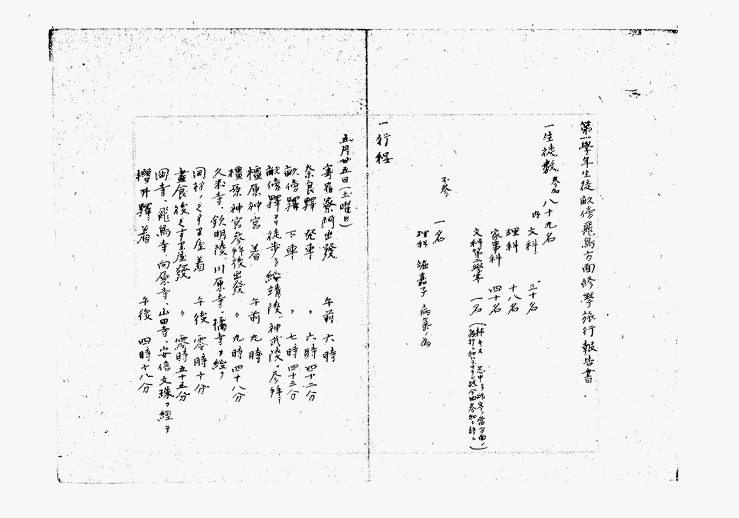 第一學年生徒畝傍飛鳥方面修學旅行報告書
一 生徒數 參加 八十九名
内 文科 三十名
理科 十八名
家事科 四十名
文科第三學年 一名
不參 一名
理科 堀嘉子 病氣ノ為
一 行程
五月廿五日(土曜日)
寄宿寮門出發 午前 六時
奈良驛 発車 〃 六時四十二分
畝傍驛 下車 〃 七時四十三分
畝傍驛ヨリ徒歩ニテ綏靖陵、神武陵ニ參拝
橿原神宮 着 午前 九時
橿原神宮參拝後出發 〃 九時四十八分
久米寺、欽明陵、川原寺、橘寺ヲ經テ
岡村ノくすりや屋着 午後 零時十分
晝食後くすりや屋發 〃 零時五十五分
岡寺、飛鳥寺、向原寺、山田寺、安倍文珠ヲ經テ
櫻井驛 着 午後 四時十八分